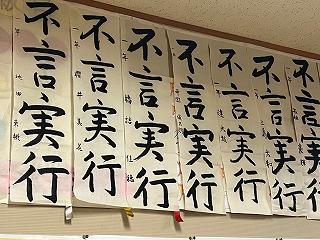 不言実行
不言実行
不言実行
不言実行
不言実行
不言実行
不言実行